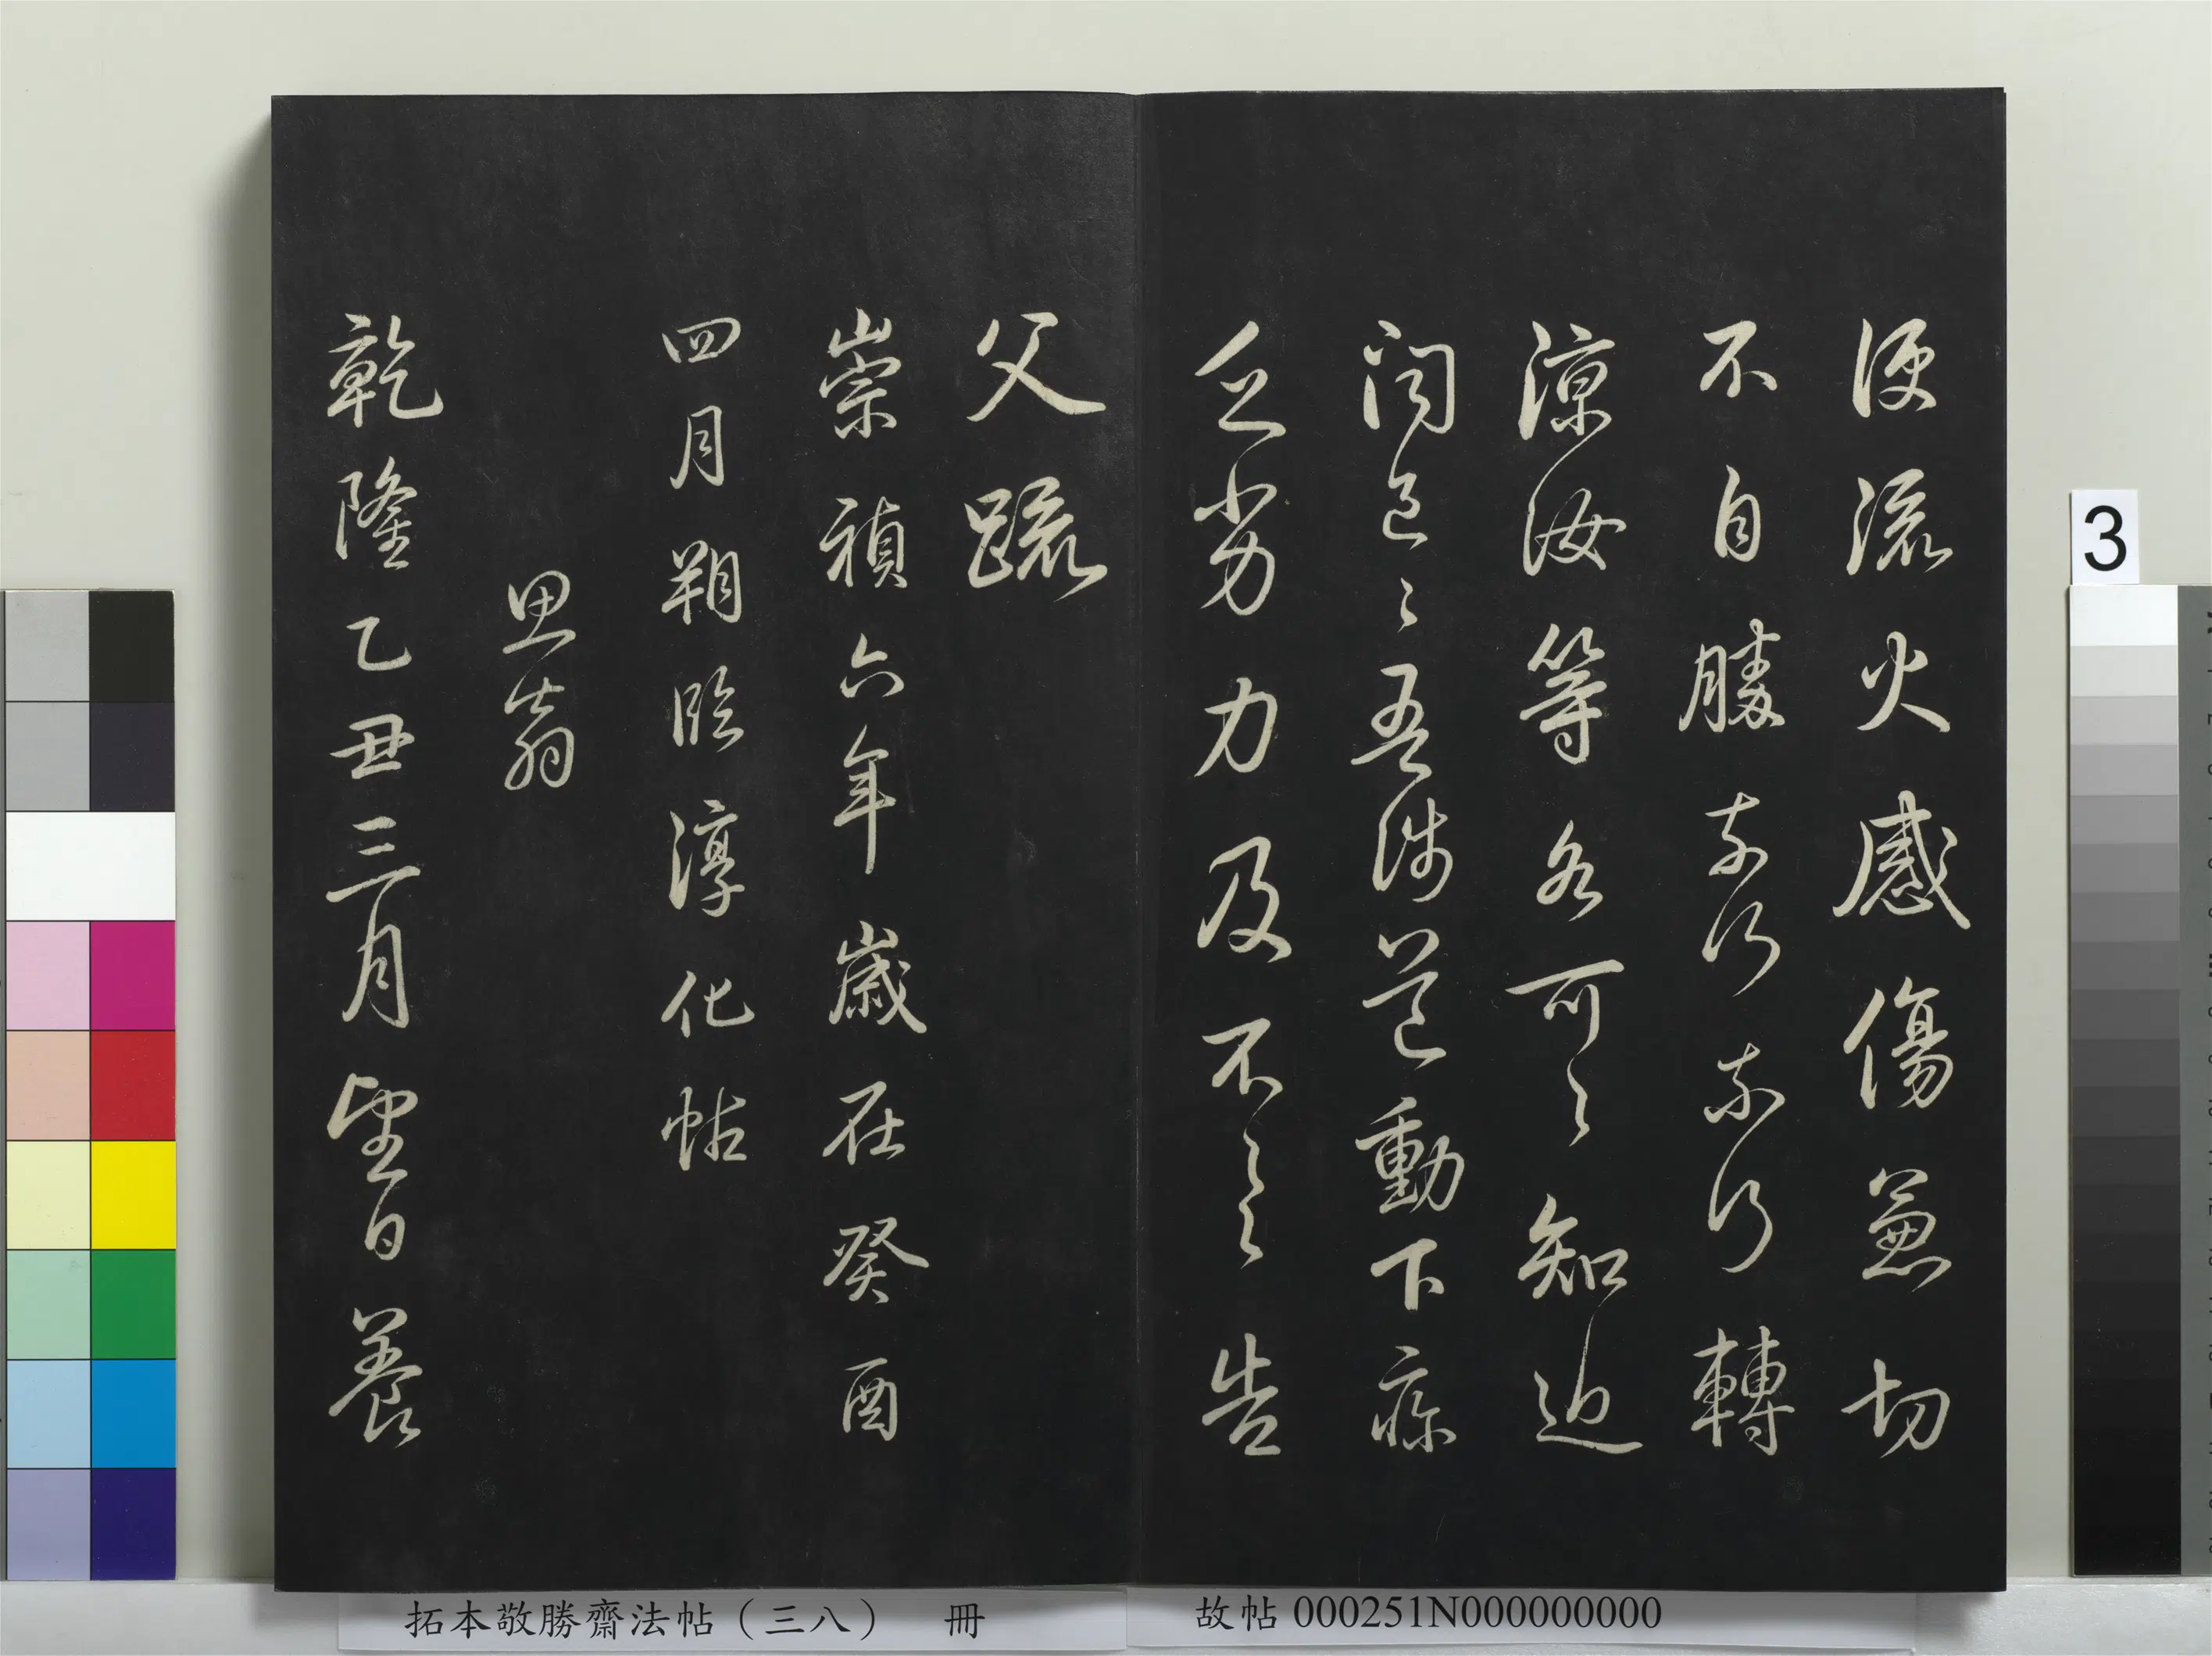 便流火感傷兼切
不自勝奈何奈何轉
涼汝等各可〻知近
問邑〻吾涉道動下疾
乏劣力及不一一告
父疏
崇禎六年歲在癸酉
四月朔臨淳化帖
思翁
乾隆乙丑三月望日養
3
拓本敬勝齋法帖（三八） 冊
故帖 000251N000000000